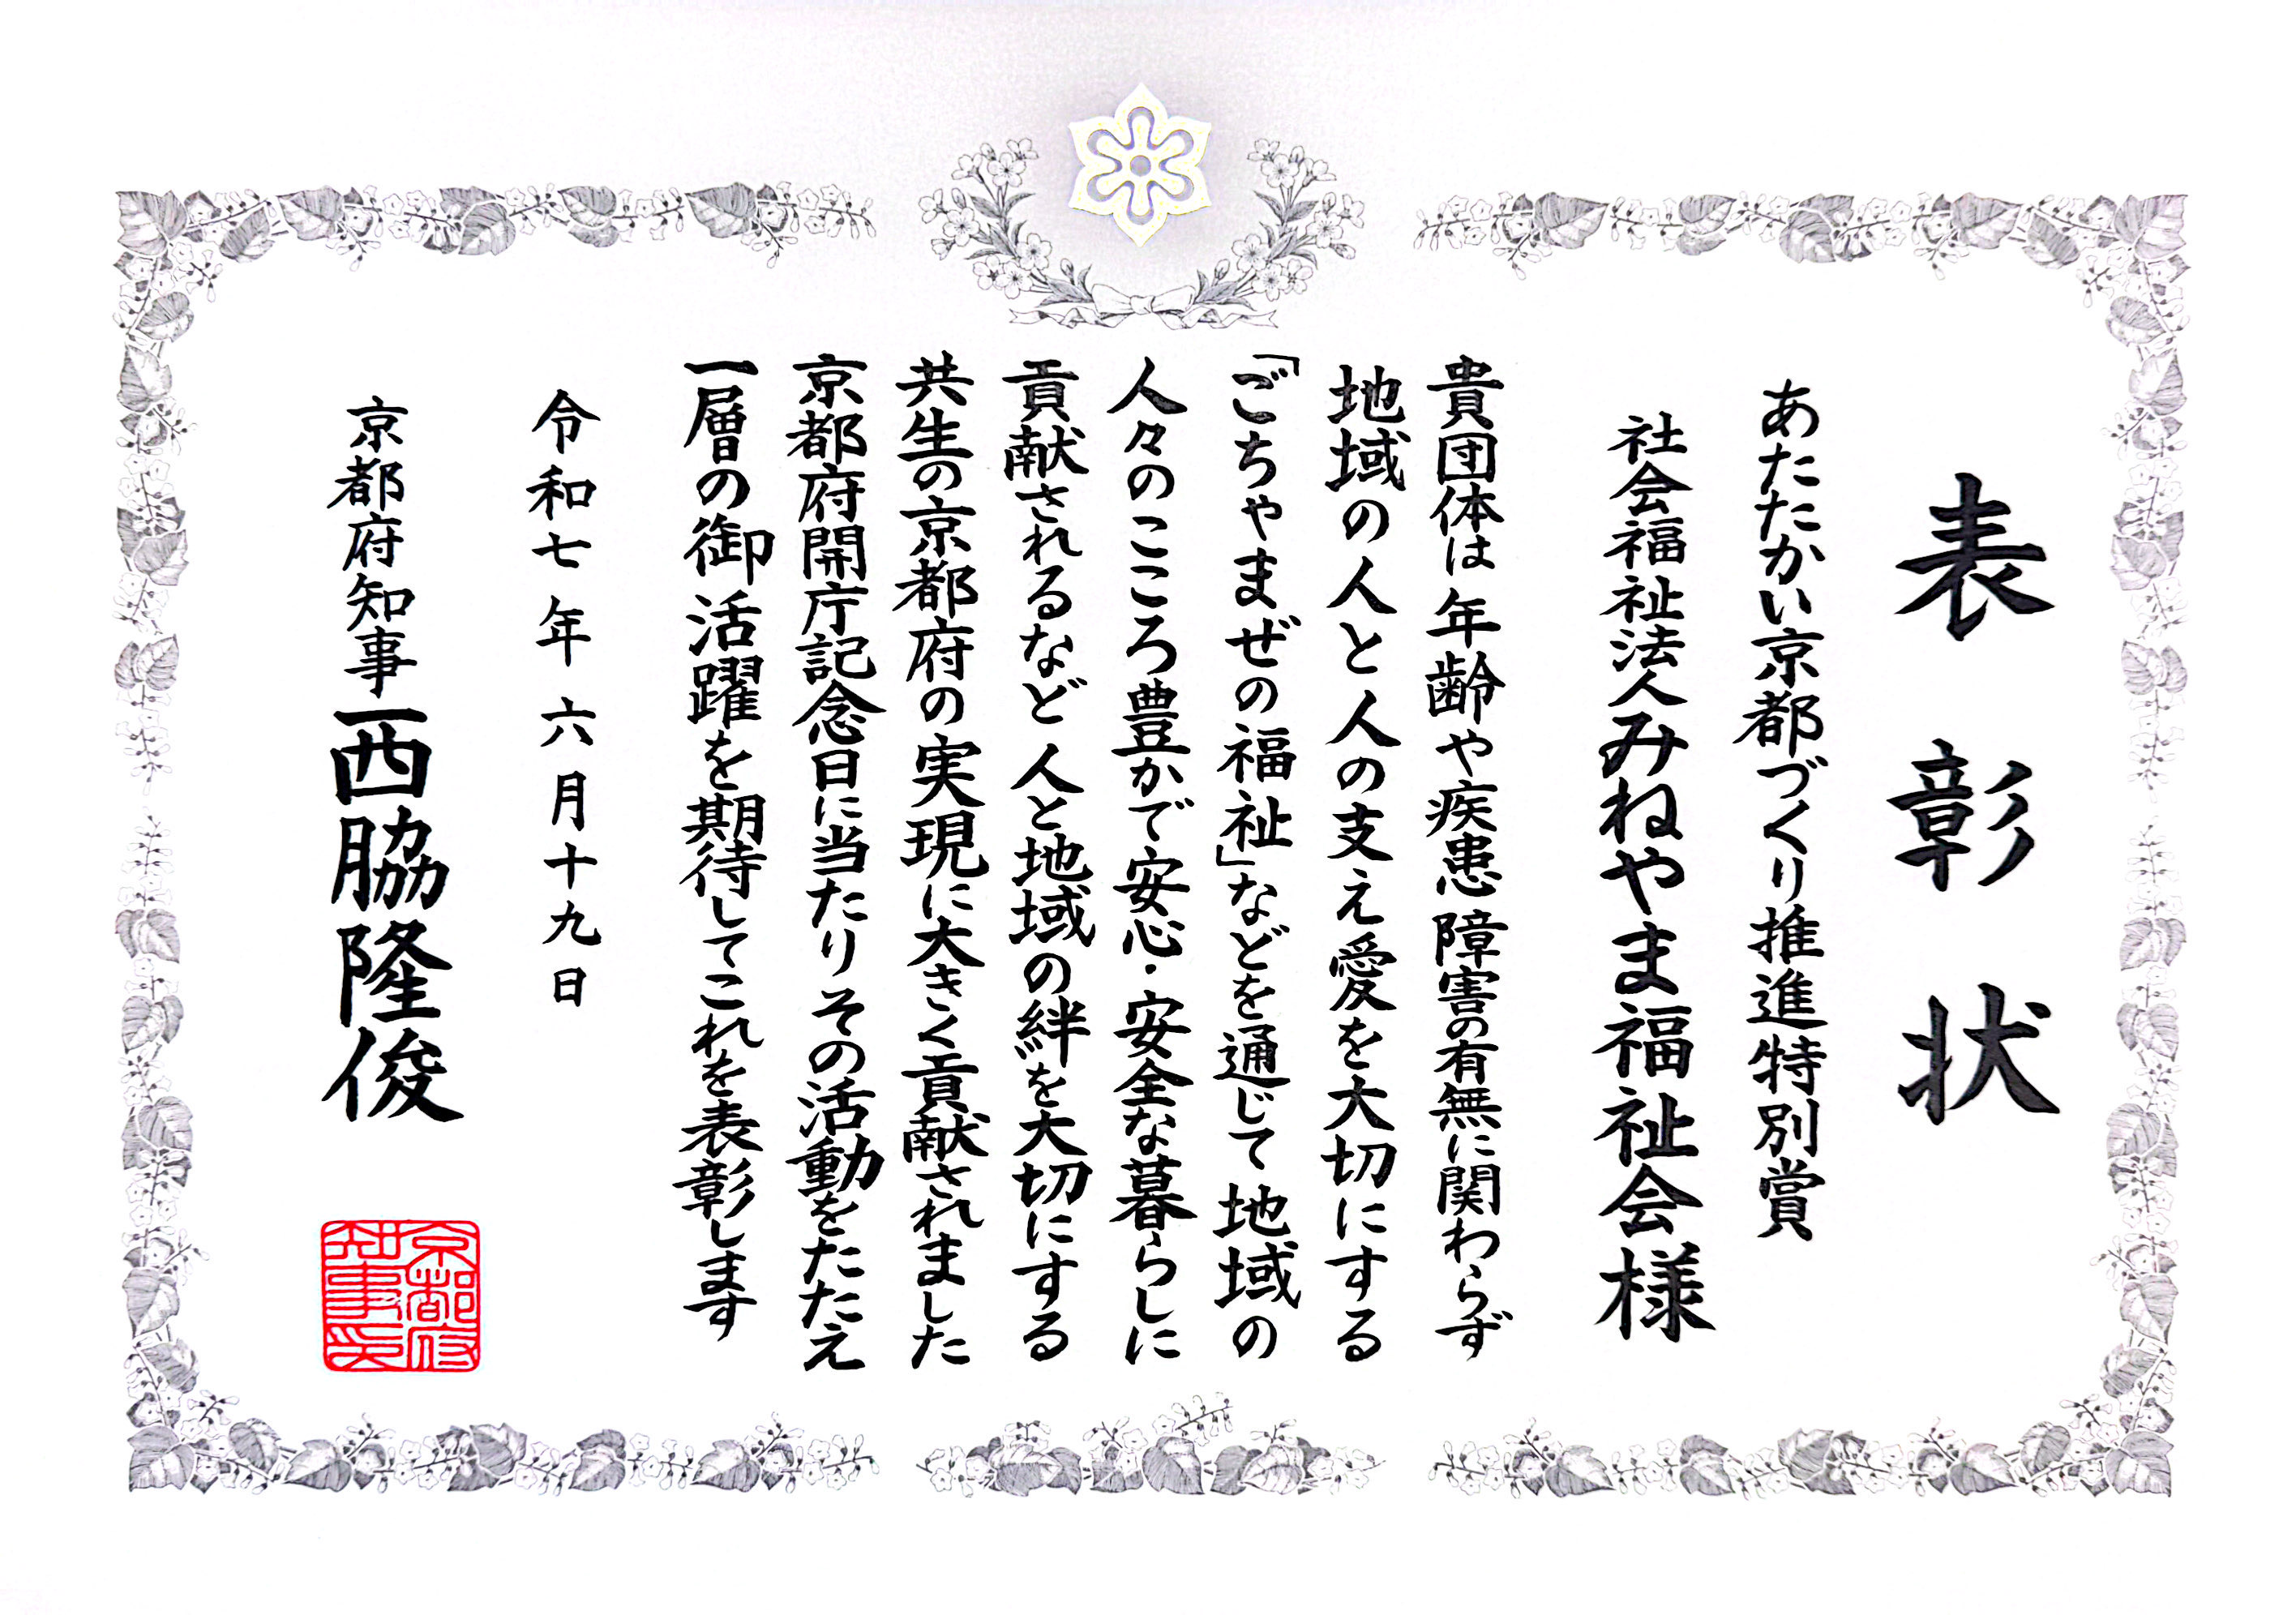 表彰状
あたたかい京都づくり推進特別賞
社会福祉法人みねやま福祉会様
貴団体は年齢や疾患障害の有無に関わらず
地域の人と人の支え愛を大切にする
「ごちゃまぜの福祉」などを通じて地域の
人々のこころ豊かで安心・安全な暮らしに
貢献されるなど人と地域の絆を大切にする
共生の京都府の実現に大きく貢献されました
京都府開庁記念日に当たりその活動をたたえ
一層の御活躍を期待してこれを表彰します
令和七年六月十九日
京都府知事西脇隆俊
京都府
知事印